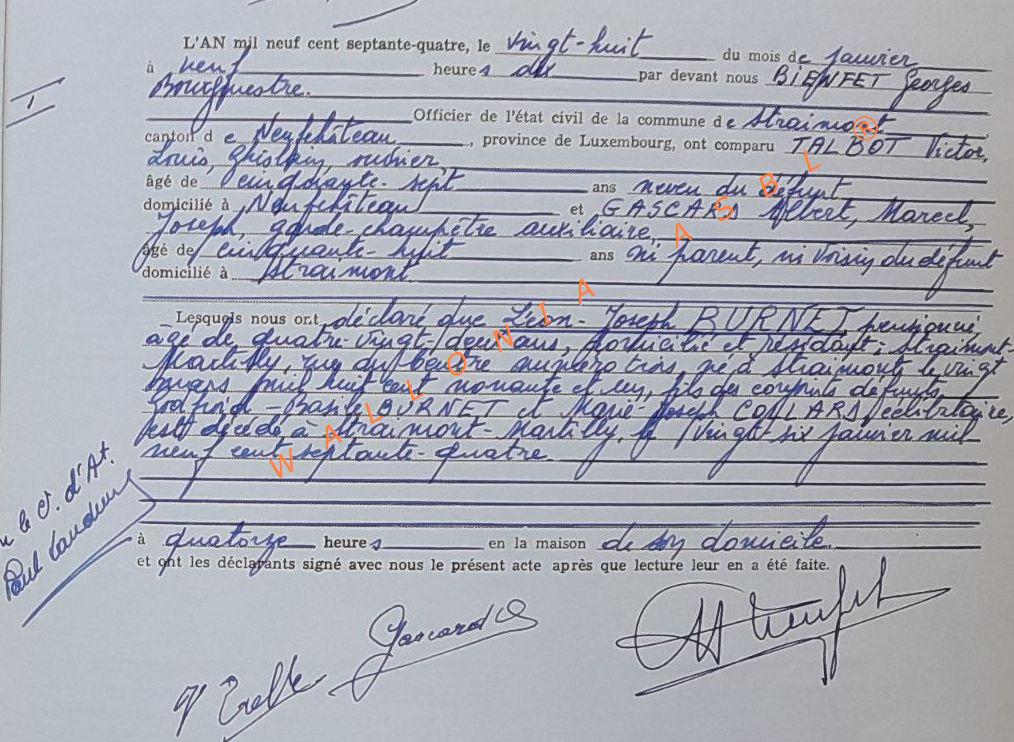 L'AN mil neuf cent septante-quatre, le vingt-huit du mois de janvier
à neuf heures dix par devant nous BIENFET Georges
Bourgmestre.
Officier de l'état civil de la commune de Straimont
canton de Neufchâteau, province de Luxembourg, ont comparu TALBOT Victor,
Louis, Ghislain,
âgé de cinquante-sept ans neveu du défunt
domicilié à Neufchâteau et GASCARD Albert, Marcel,
Joseph, garde-champêtre auxiliaire,
âgé de cinquante-huit ans ni parent, ni voisin du défunt
domicilié à Straimont.
Lesquels nous ont déclaré que Léon-Joseph BURNET, pensionné,
âgé de quatre-vingt-deux ans, domicilié et résidant à Straimont-
Martilly, rue du numéro trois, né à Straimont, le vingt
mars mil huit cent nonante et un, fils des conjoints défunts,
-Basile BURNET et Marie-Joseph COLLARD, célibataire,
est décédé à Straimont-Martilly, le vingt-six janvier mil
neuf cent septante-quatre
à quatorze heures en la maison de son domicile.
et ont les déclarants signé avec nous le présent acte après que lecture leur en a été faite.
le C. d'At.
Paul
Gascard
WALLONIA ASBL ®